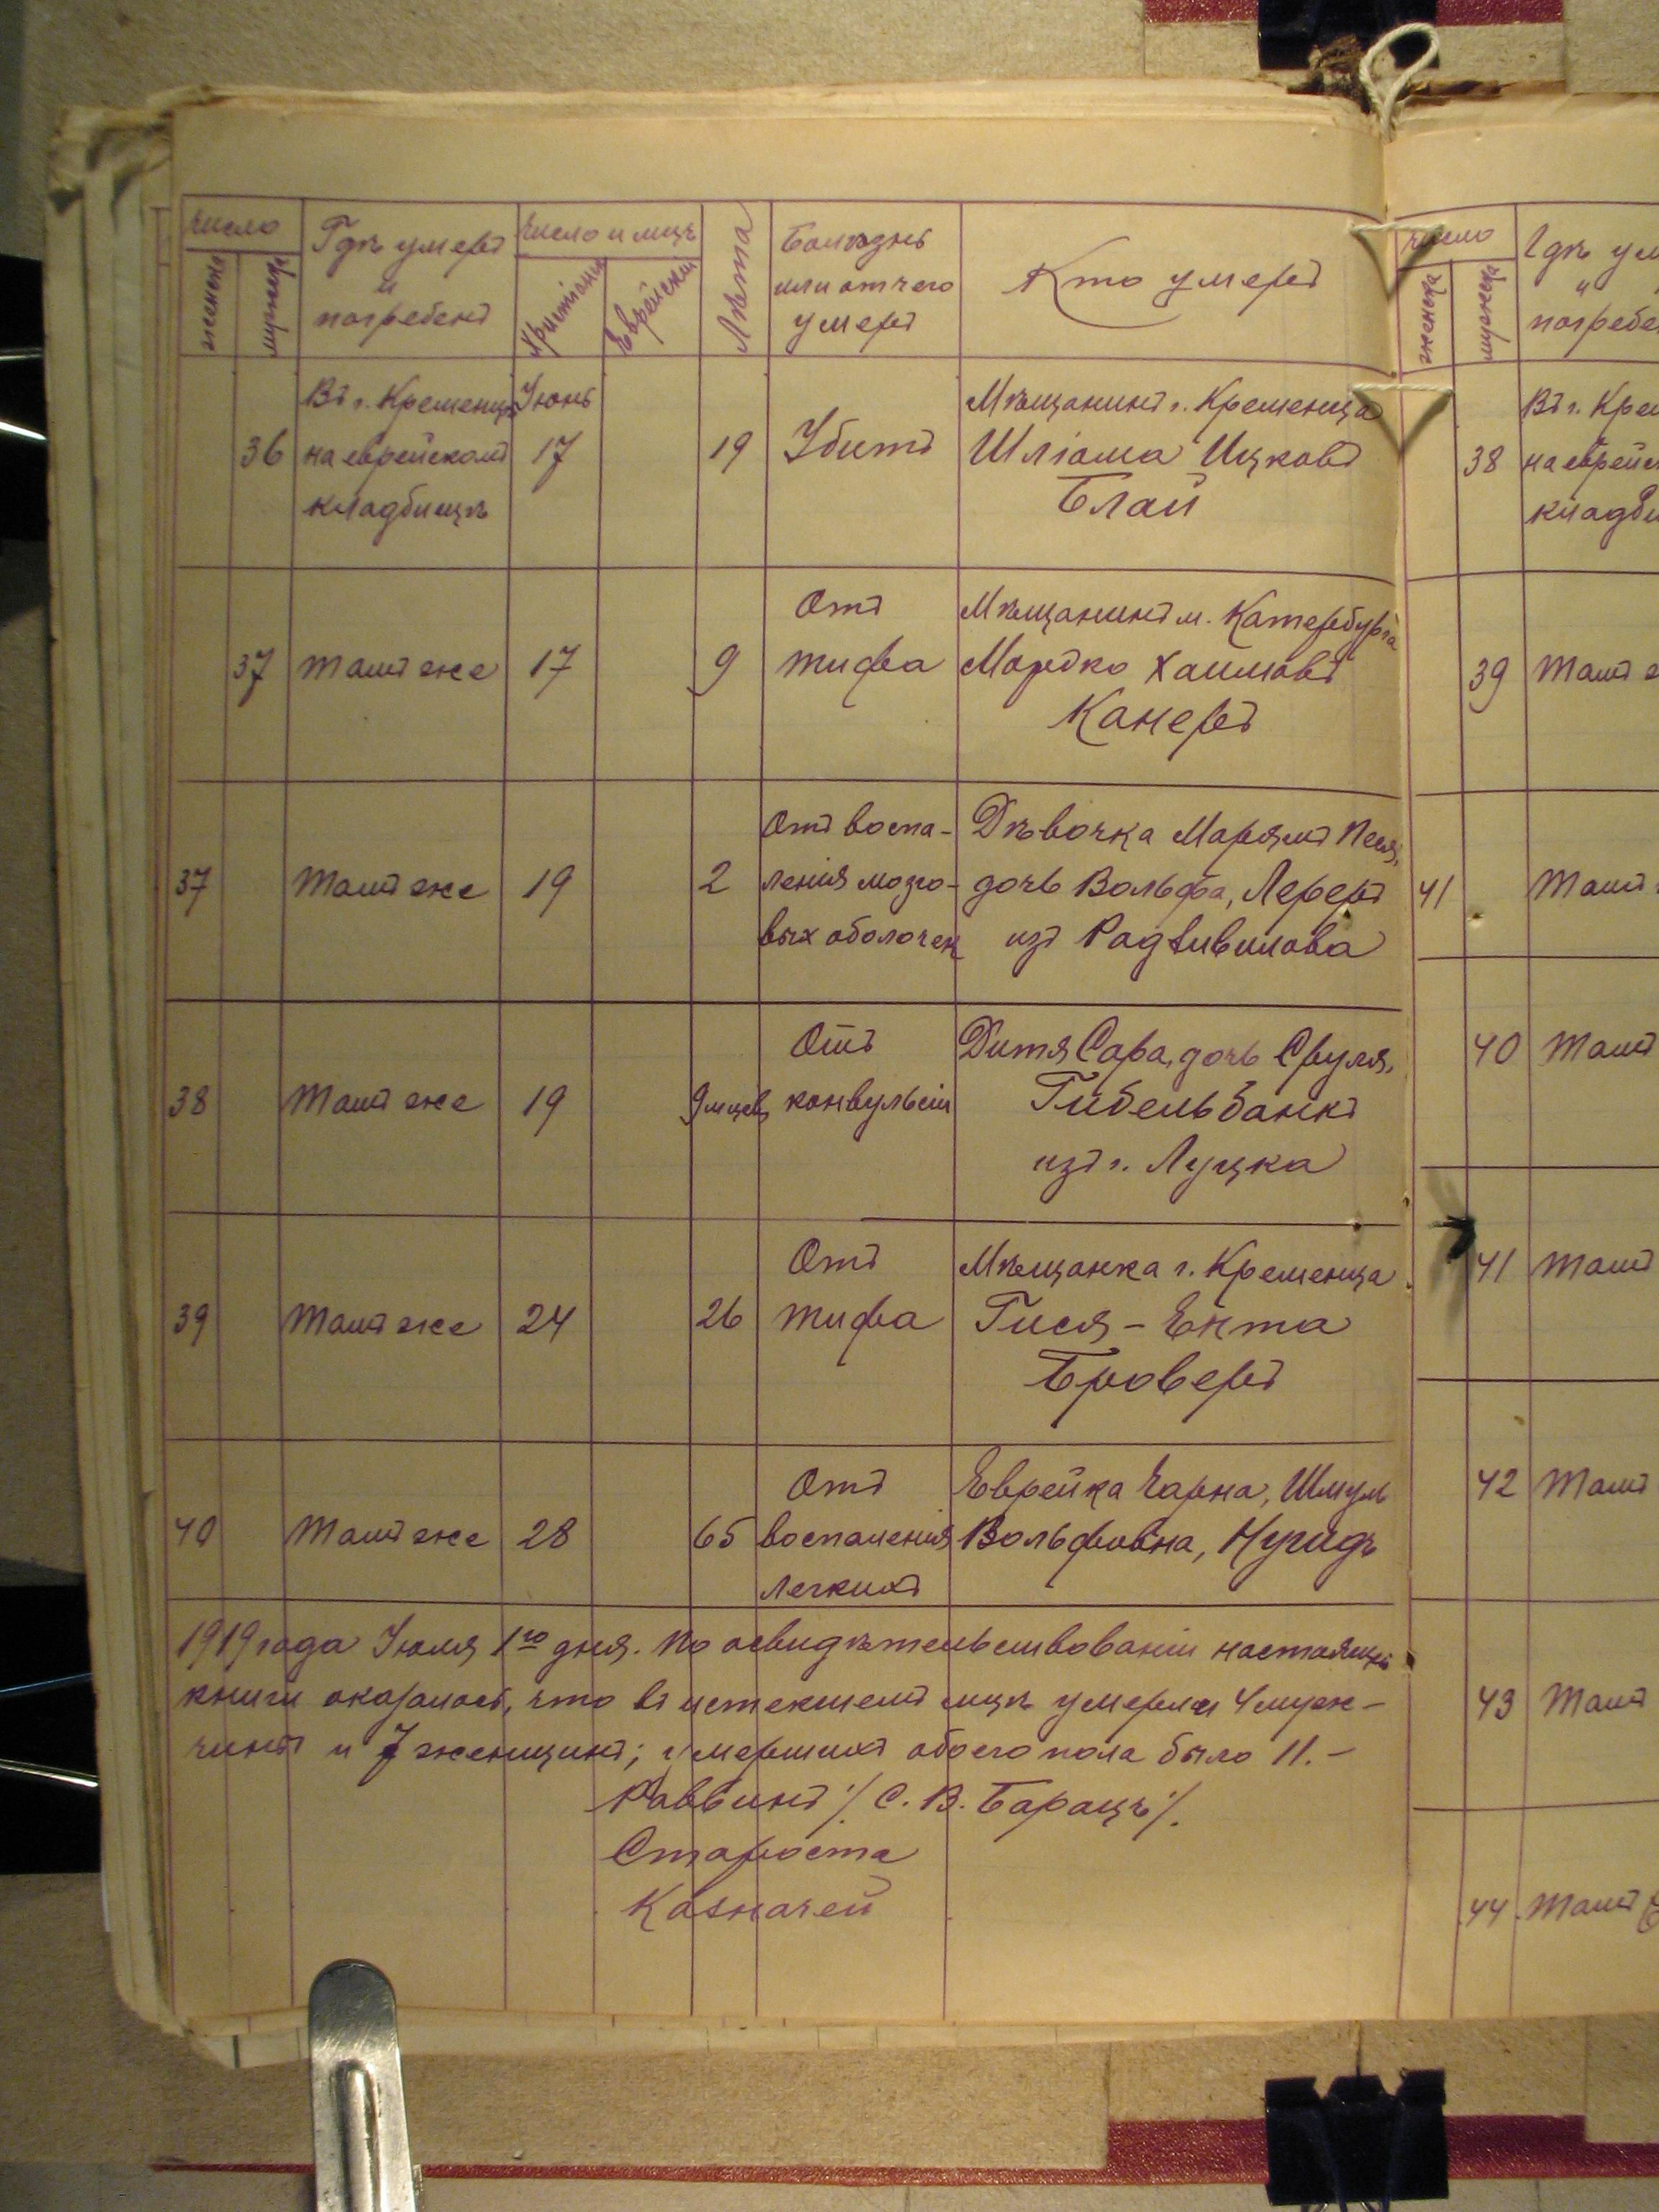 число
женска
мужска
Гдѣ умеръ
и
погребенъ
Число и мцъ
Христіанск
Еврейскій
Лѣта
Болѣзнь
или отчего
умеръ
Кто умеръ
36
Въ г. Кременцѣ
на еврейскомъ
кладбищѣ
Іюнь
17
19
Убитъ
Мѣщанинъ г. Кременца
Шліома Ицковъ
Блай
37
Тамъ же
17
9
Отъ
тифа
Мѣщанинъ м. Катербурга
Мордко Хаимовъ
Канеръ
37
Тамъ же
19
2
Отъ воспа-
ленія мозго-
вых оболочек
Дѣвочка Марямъ Песя,
дочь Вольфа, Лереръ
изъ Радзивилова
38
Тамъ же
19
9 мцевъ
Отъ
конвульсіи
Дитя Сара, дочь Сруля,
Гибельбанкъ
изъ г. Луцка
39
Тамъ же
24
26
Отъ
тифа
Мѣщанка г. Кременца
Гися-Ента
Броверъ
40
Тамъ же
28
65
Отъ
воспаленія
легкихъ
Еврейка Чарна, Шмуль
Вольфовна, Нугидъ
1919 года Іюля 1го дня. По освидѣтельствованіи настоящей
книги оказалось, что въ истекшемъ мцѣ умерли 4 муж-
чинъ и 7 женщинъ; умершихъ обоего пола было 11.-
Раввинъ /С. В. Барацъ/.
Староста
Казначей
число
женска
мужска
Гдѣ ум
и
погребе
38
Въ г. Крем
на еврейс
кладби
39
Тамъ
41
Тамъ
40
Тамъ
41
Тамъ
42
Тамъ
43
Тамъ
44
Тамъ